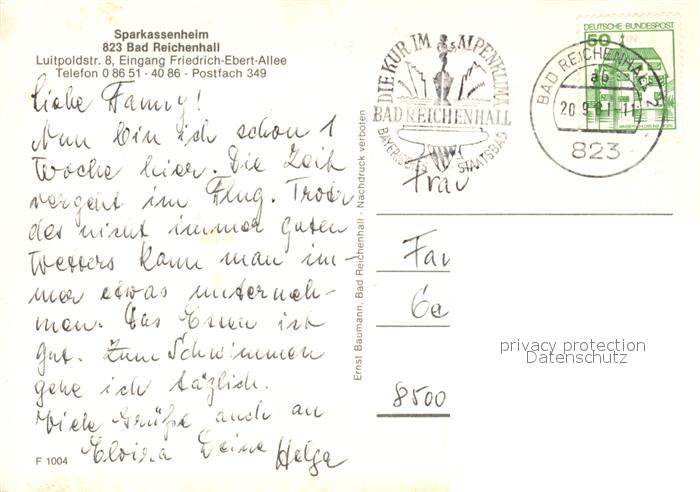 Sparkassenheim
823 Bad Reichenhall
Luitpoldstr. 8, Eingang Friedrich-Ebert-Allee
Telefon 0 86 51 - 40 86 - Postfach 349
Liebe Fanny!
Nun bin ich schon 1
Woche hier. Die Zeit
vergeht im Flug. Trotz
des nicht immer guten
Wetters kann man im-
mer etwas unterneh-
men. Das Essen ist
gut. Zum Schwimmen
gehe ich täglich.
Viele Grüße auch an
Deine Helga
F 1004
Ernst Baumann, Bad Reichenhall - Nachdruck verboten
DIE KUR IM ALPENKLIMA
BAD REICHENHALL
BAYERISCHES STAATSBAD
BAD REICHENHALL 2
ab
20.9.81-11
823
DEUTSCHE BUNDESPOST
50
Frau
Fan
8500
privacy protection
Datenschutz